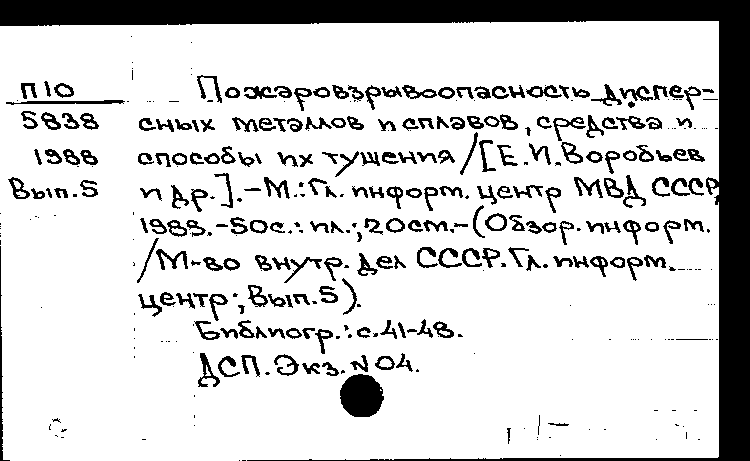 П10 Пожаровзрывоопасность диспер-
5838 сных металлов и сплавов, средства и
1988 способы их тушения / [Е.И. Воробьев
Вып.5 и др.].-М.: Гл. информ. центр МВД СССР,
1988.-50с.: ил.; 20см.-(Обзор. информ.
/М-во внутр. дел СССР. Гл. информ.
центр; Вып.5).
Библиогр.: с.41-48.
ДСП. Экз. N 04.